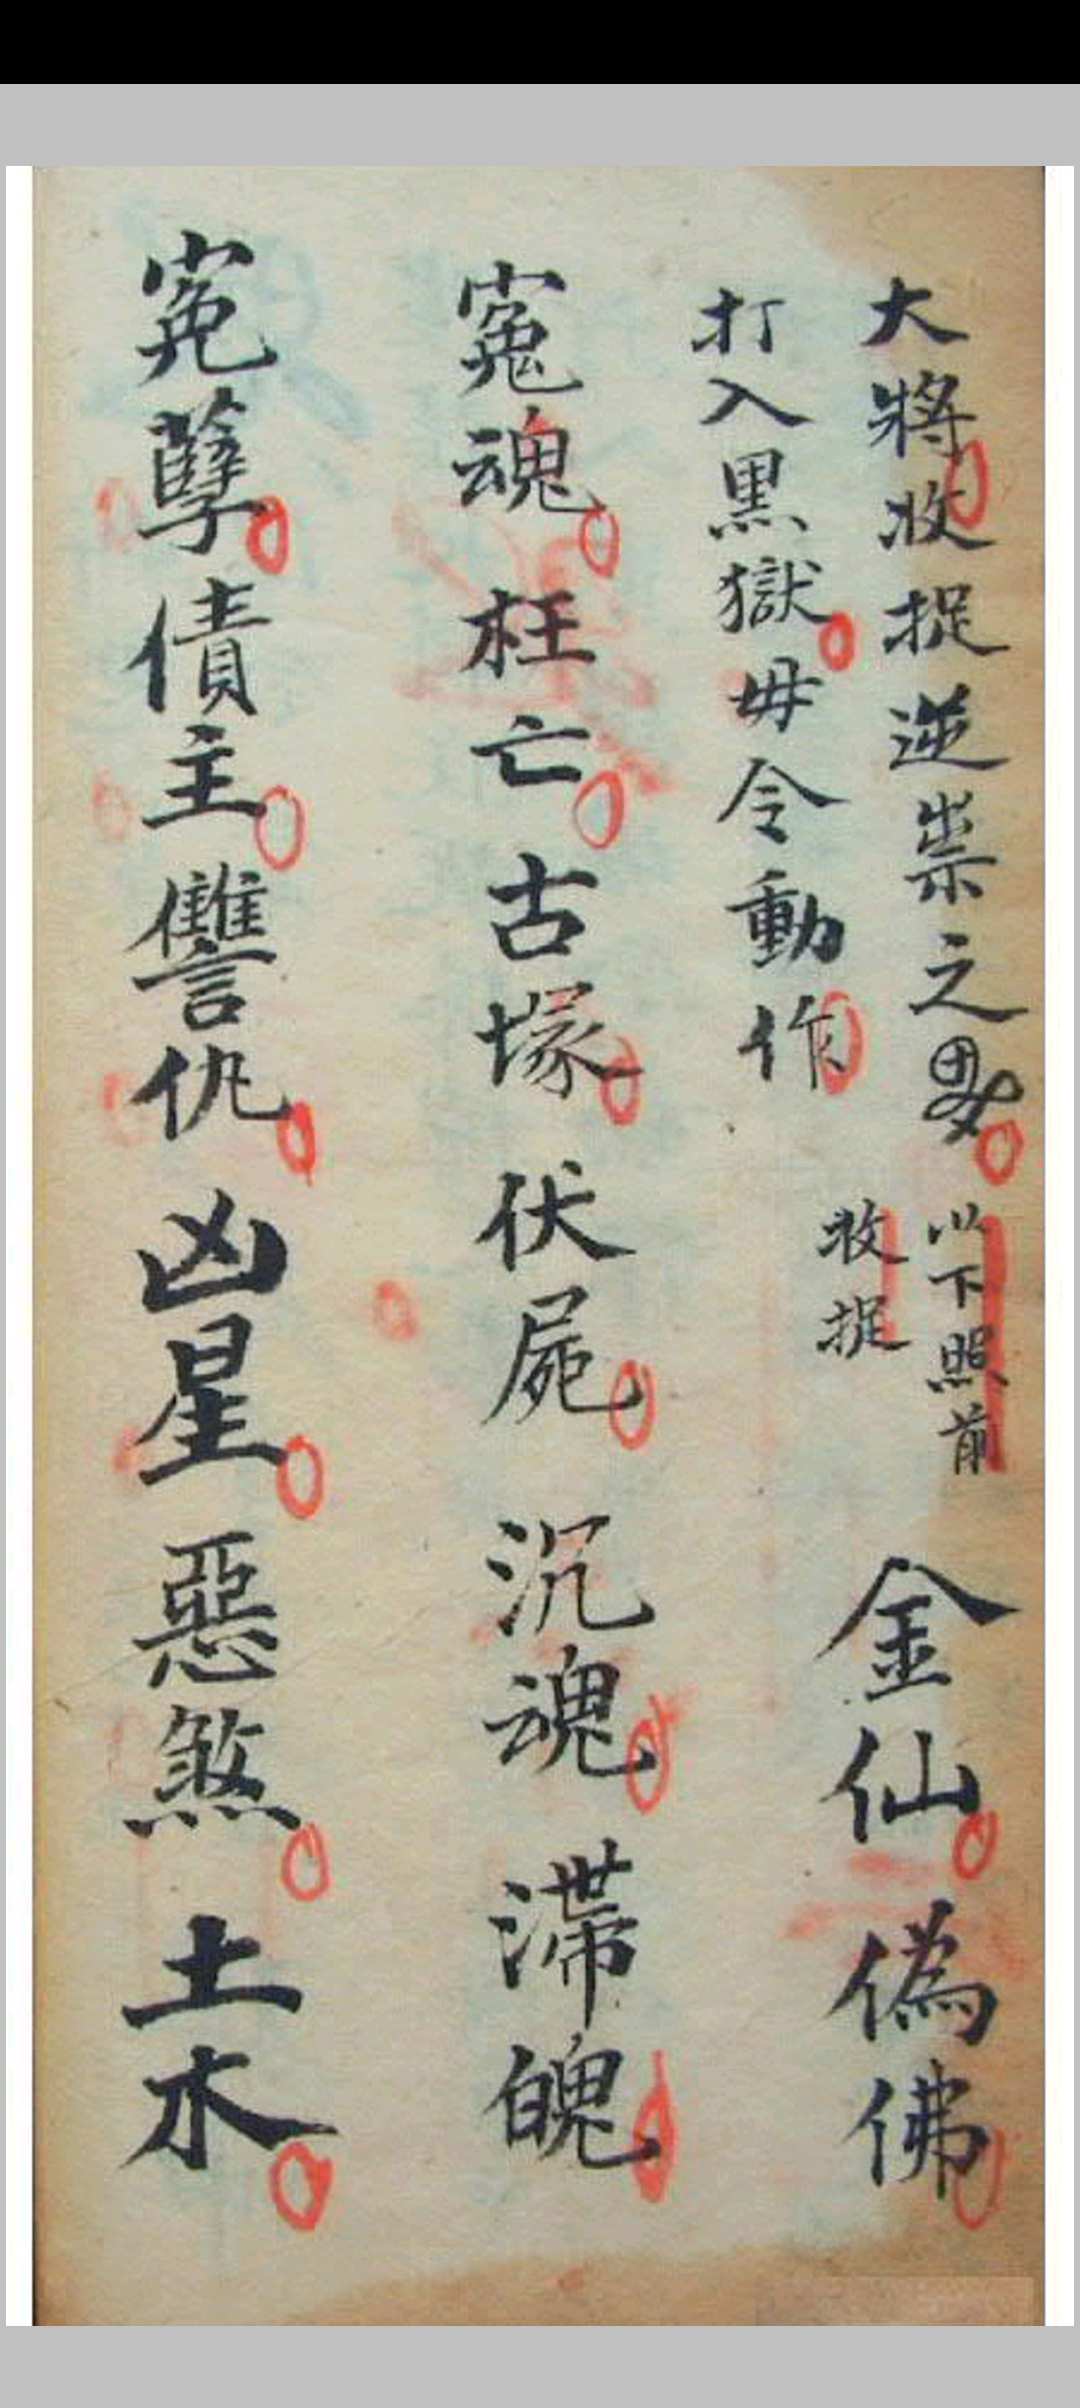 大將收捉逆祟之
打入黑獄毋令動作
以下照前
收捉
金仙偽佛
冤魂枉亡古塚伏屍沉魂滯魄
冤孽債主讐仇凶星惡煞土木